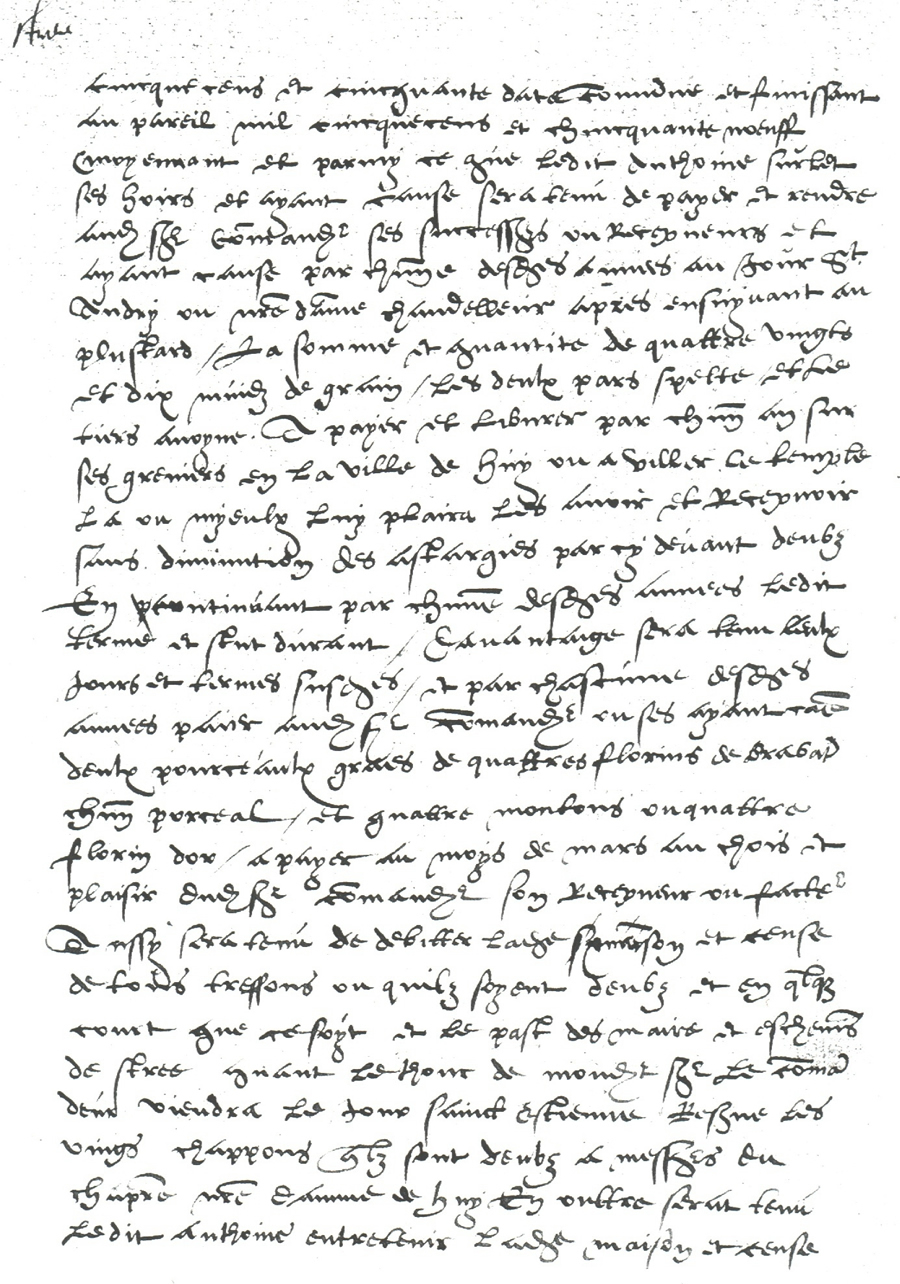 Stree
cincque cens et cincquante date Comudne et finissant
au pareil mil cincquecens et chincquante noeuff
Moyennant et parmy ce que ledit Anthoine surlet
ses hoirs et ayant cause sera tenu de payer et rendre
aud Sr Comandr ses successrs ou Recepueurs et
ayant cause par chune desdes annees au Jour St
Andry ou nre dame chandelleur apres ensuyuant au
plustard / La somme et quantite de quattre vingts
et dix muidz de grain / les deulx pars spelte et le
tiers avoyne. A payer et liburer par chun an sur
ses greniers en la ville de huy ou a viller le temple
La ou myeulx luy plaira les avoir et Recepuoir
sans diminution des astargies par cy devant deubz
En continuant par chune desdes annees ledit
terme et stut durant / Davantaige sera tenu leulx
Jours et termes susdes / et par chascune desdes
annees paier aud Sr Comandr ou ses ayant cae
deulx pourceaulx graes de quattres florins de braba
chun porceal / et quattre moutons ou quattre
florin dor / a payer au moys de mars au chois et
plaisir dud Sr Comandr son Recepueur ou facter
Aussy sera tenu de debitter lade maison et cense
de touts treffons ou quilz soyent deubz et en qlq
court que ce soyt et le past des maire et eschevis
de stree quant le thour de mondt Sr le Coma
deur viendra le Jour sainct Estienne Resue les
vings chappons qlz sont deubz a messrs du
chapre nre damme de huy En oultre serat tenu
Ledit anthoine entretenir lade maison et cense